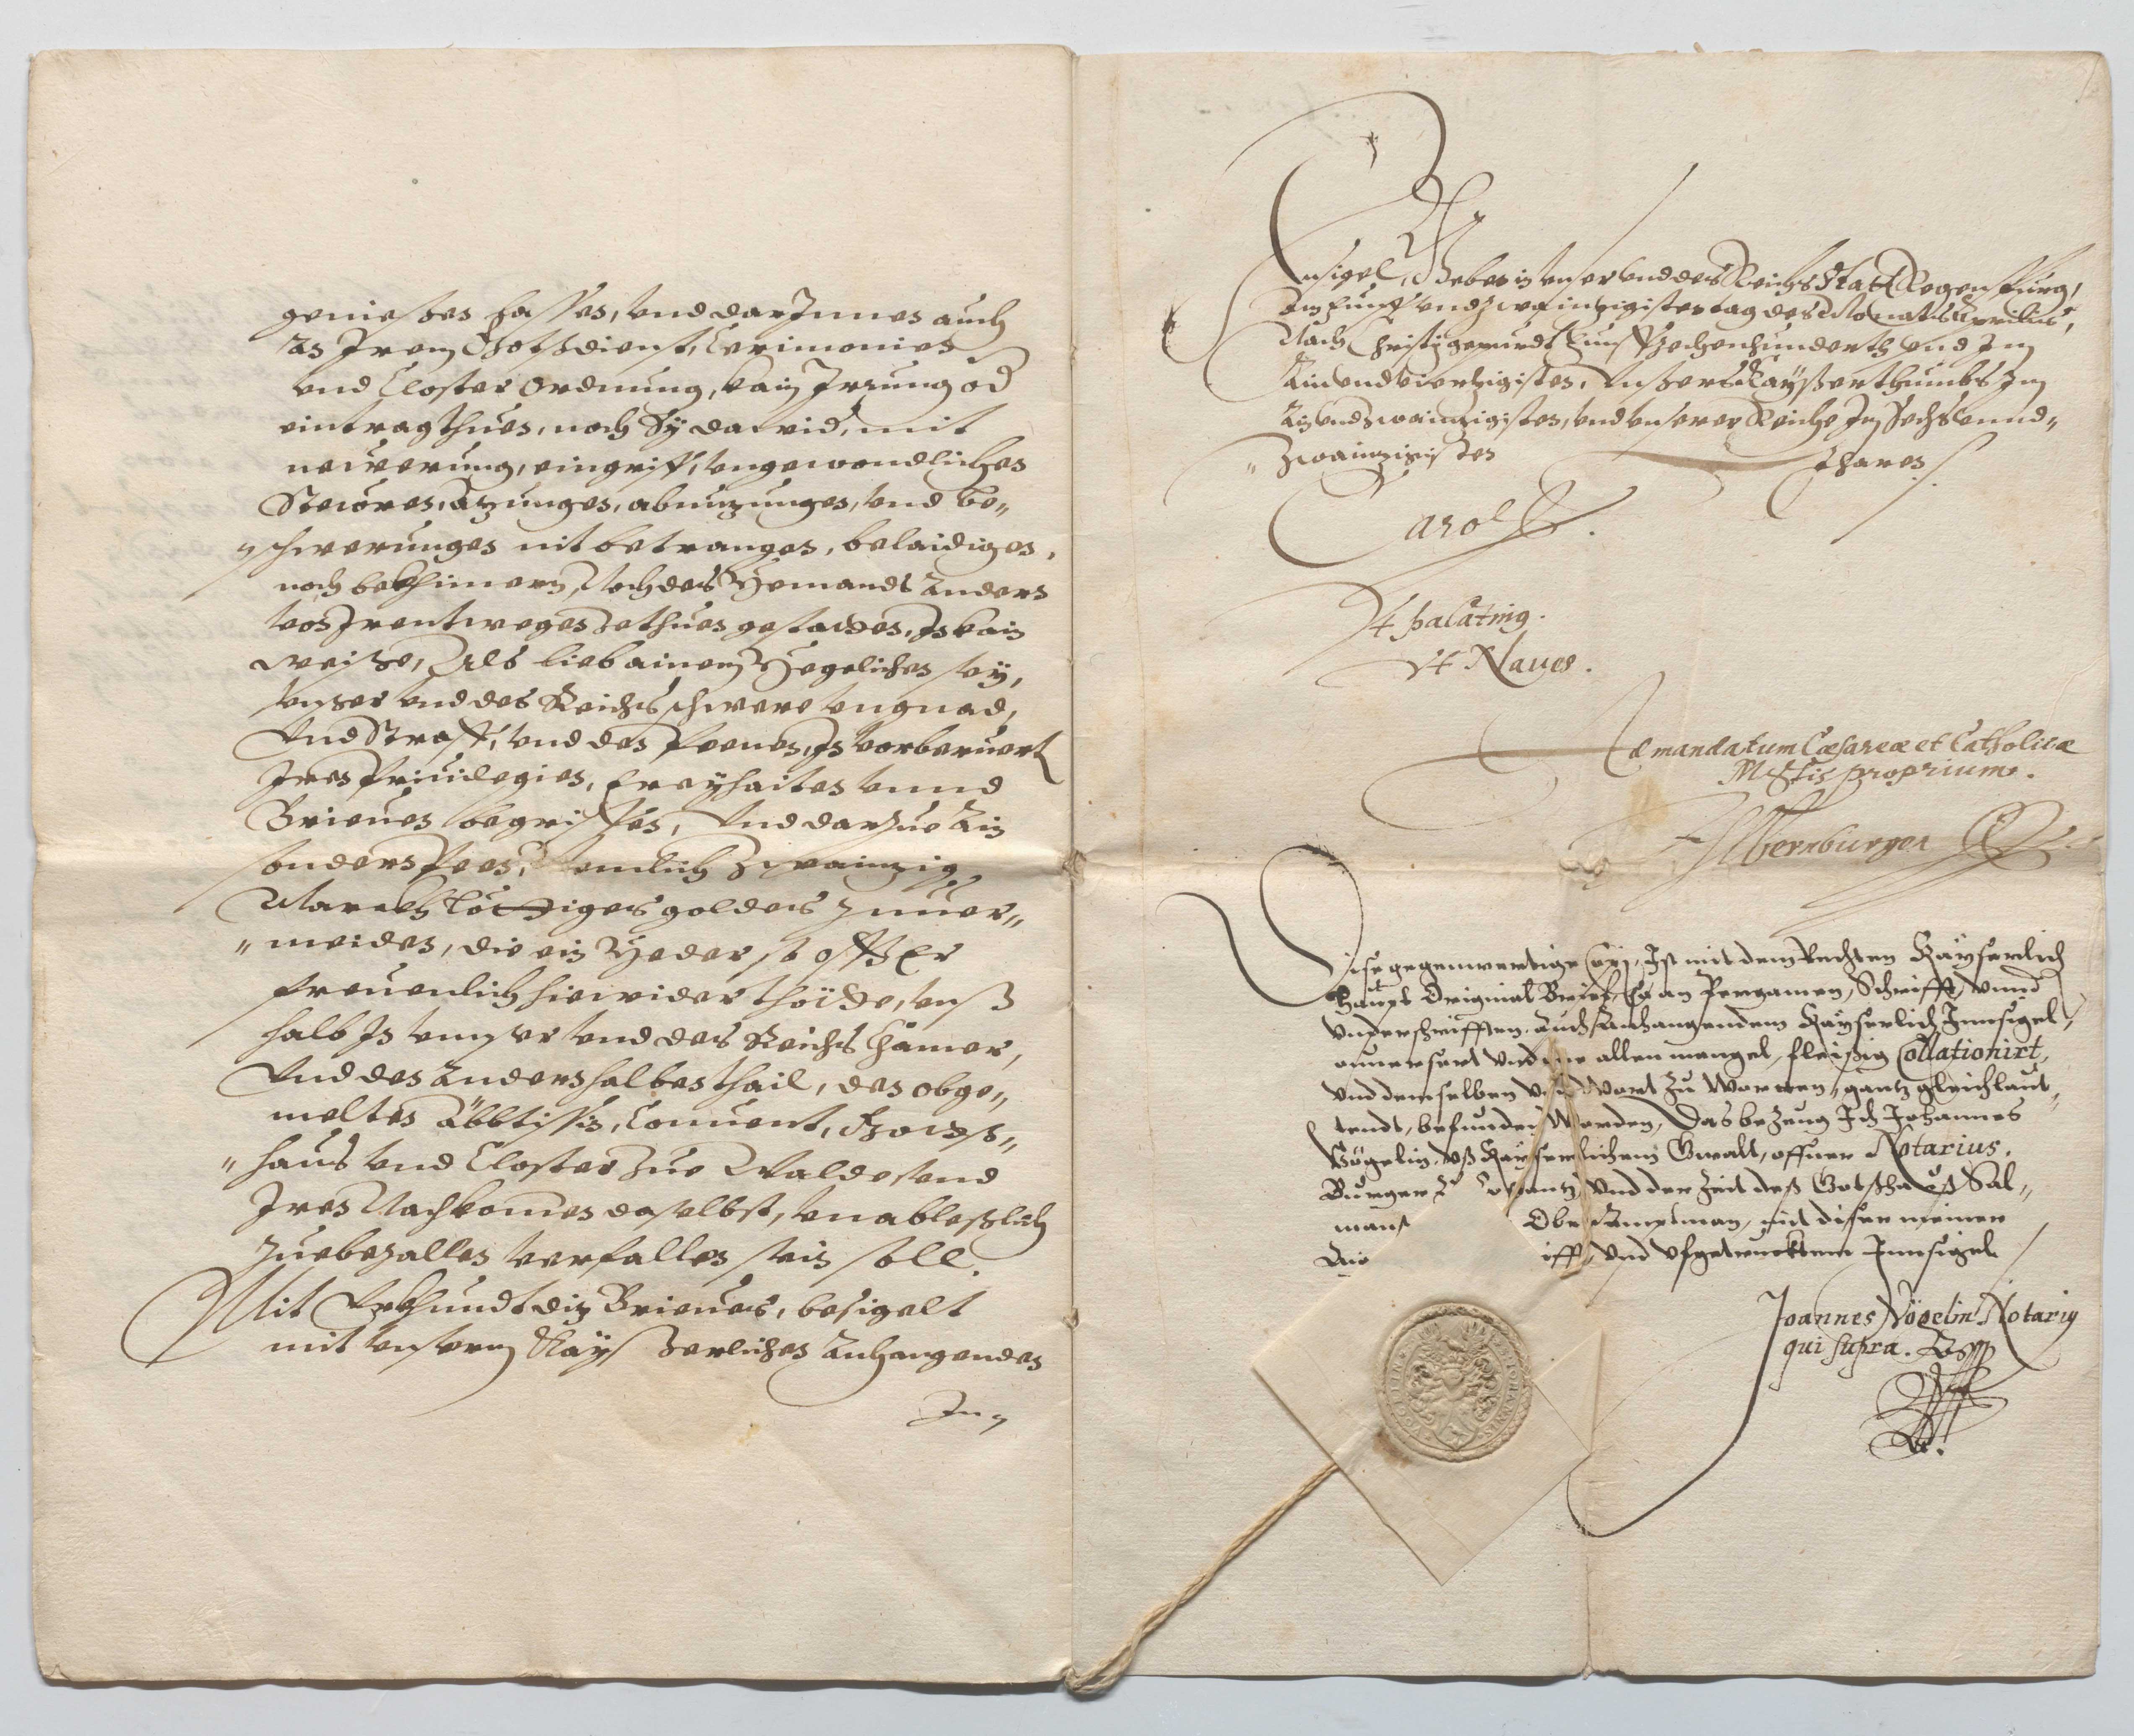 geniessen lassen, vnd dar Innen auch
An Irem Gotsdienst, Cerimonien
vnd Closter Ordnung, kain Irrung od
eintrag thuen, noch Sy darwid, mit
newerung, eingriff, vngewondlichen
Stewren, Atzungen, abnutzungen, vnd be„
„schwerungen nit betrangen, belaidigen,
noch bekhimern, Noch des Yemandt Anders
von Irentwegen zethuen gestatten, In kain
weise, Als lieb ainem Yegelichen sey,
vnser vnd des Reichs schwere vngnad,
vnd Straff, vnd des Peenen, In vorberuert
Iren Priuilegien, freyhaiten vnnd
Brieuen begriffen, Vnd darzue Ain
sonders Peen, Nemlich zwaintzig
Marckh Löttiges goldes zuuer„
„meiden, die ein Yeder so offt Er
freuenlich hiewider thätte, vnß
halb In vnnser vnd des Reichs Chamer,
Vnd den Andern halben thail, den obge„
melten Äbbtissin, Conuent, Gottß„
„haus vnd Closter zue Walde vnd
Iren Nachkomen daselbst, vnableßlich
zuebezallen verfallen sein soll.
Mit Vrkhundt diz Brieues, besigelt
mit vnserm Kayserlichen Anhangenden
In„
nsigel, Geben in vnser vnd des Reichs Stat Regenspurg,
Am Funff vnd zwaintzigisten tag des Monats Aprilis,
Nach Christi gepurdt Funffzechenhunderth vnd Im
Ain vnd viertzigisten, Vnßers Kayßerthumbs Im
Ain vnd zwaintzigisten, vnd vnserer Reiche Im Sechs vnnd„
„Zwaintzigisten Jharen.
Carol
Vt palating.
Vt Naues.
Ad mandatum Cæsareæ et Catholicæ
Mtis proprium.
Obernburger
Dise gegenwertige Copj, Ist mit dem Rechten Kayserlich
haupt Original Brief, So an Pergamen, Schrifft, vnnd
vnderschrifften, Auch Anhangendem Kayserlich Innsigel,
vnuersert vnd one allen mangel, fleißig Collationirt,
vnd demselben von Wort zu Worten, gantz gleichlaut„
tendt, befunden Worden, Das bezeug Ich Johannes
Vögelin, vß Kayserlichem Gwalt, offner Notarius,
Burger Zu Costantz, Vnd der Zeit deß Gotßhauß Sal„
manß Ober Amptman, mit diser meiner
vnd vfgetrucktem Innsigel.
Joannes Vögelin Notarig
qui supra.